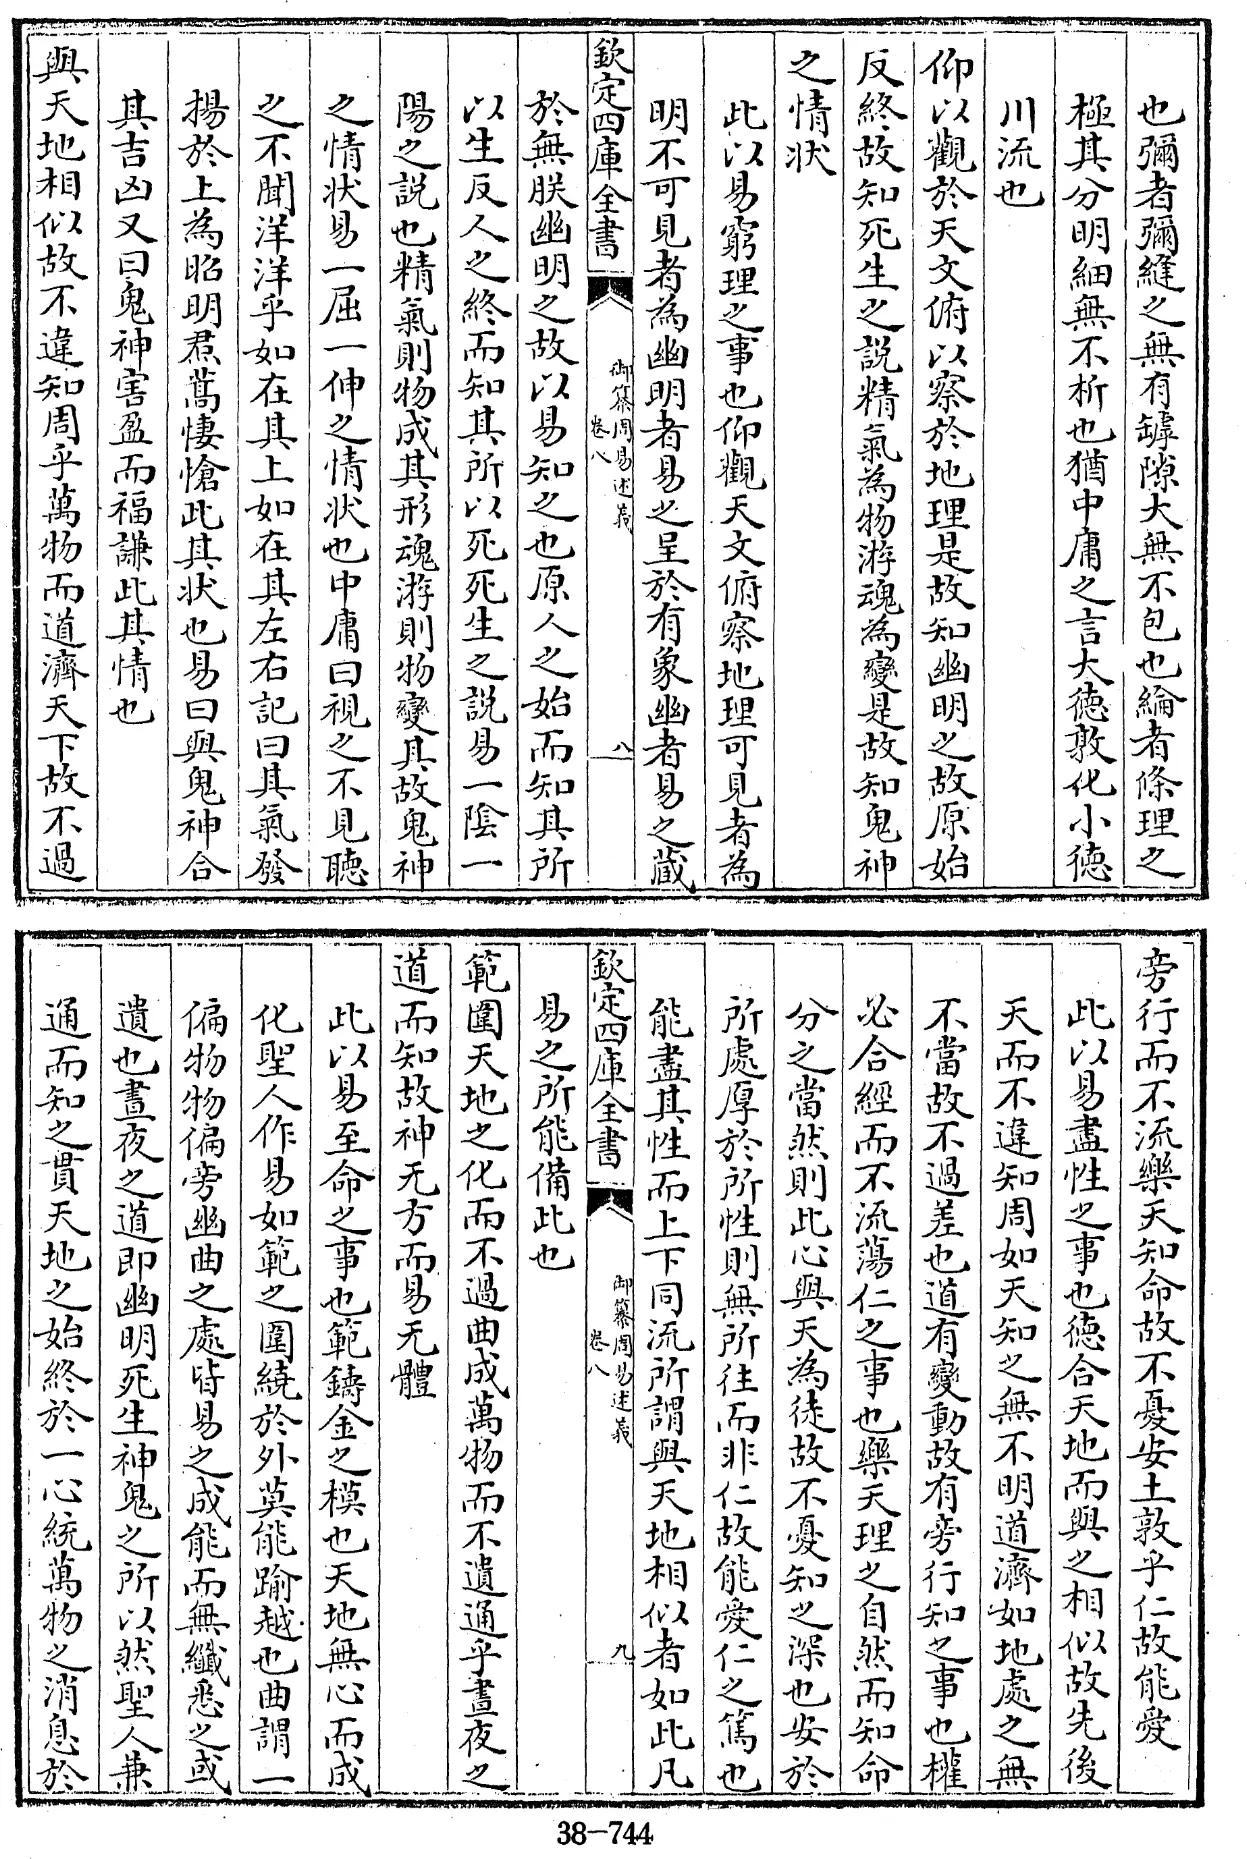 也彌者彌縫之無有罅隙大無不包也綸者條理之
極其分明細無不析也猶中庸之言大德敦化小德
川流也
仰以觀於天文俯以察於地理是故知幽明之故原始
反終故知死生之說精氣為物游魂為變是故知鬼神
之情狀
此以易窮理之事也仰觀天文俯察地理可見者為
明不可見者為幽明者易之呈於有象幽者易之藏
欽定四庫全書
御纂周易述義
卷八
八
於無朕幽明之故以易知之也原人之始而知其所
以生反人之終而知其所以死死生之說易一陰一
陽之說也精氣則物成其形魂游則物變其故鬼神
之情狀易一屈一伸之情狀也中庸曰視之不見聽
之不聞洋洋乎如在其上如在其左右記曰其氣發
揚於上為昭明焄蒿悽愴此其狀也易曰與鬼神合
其吉凶又曰鬼神害盈而福謙此其情也
與天地相似故不違知周乎萬物而道濟天下故不過
旁行而不流樂天知命故不憂安土敦乎仁故能愛
此以易盡性之事也德合天地而與之相似故先後
天而不違知周如天知之無不明道濟如地處之無
不當故不過差也道有變動故有旁行知之事也權
必合經而不流蕩仁之事也樂天理之自然而知命
分之當然則此心與天為徒故不憂知之深也安於
所處厚於所性則無所往而非仁故能愛仁之篤也
能盡其性而上下同流所謂與天地相似者如此凡
欽定四庫全書
御纂周易述義
卷八
九
易之所能備此也
範圍天地之化而不過曲成萬物而不遺通乎晝夜之
道而知故神无方而易无體
此以易至命之事也範鑄金之模也天地無心而成
化聖人作易如範之圍繞於外莫能踰越也曲謂一
偏物物偏旁幽曲之處皆易之成能而無纖悉之或
遺也晝夜之道即幽明死生神鬼之所以然聖人兼
通而知之貫天地之始終於一心統萬物之消息於
38-744